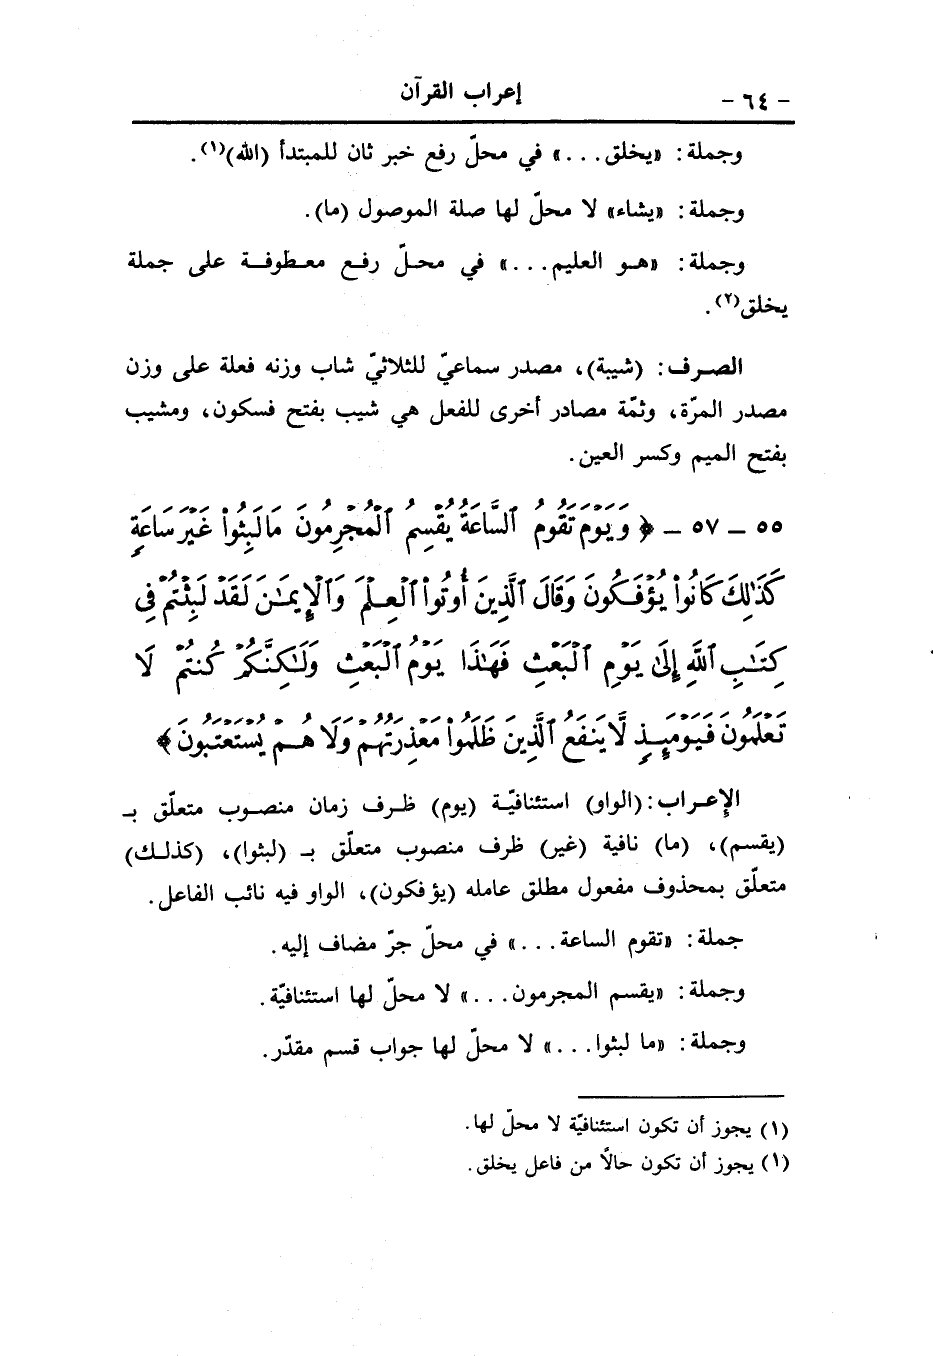 - ٦٤ -
إعراب القرآن
وجملة: «يخلق...» في محلّ رفع خبر ثان للمبتدأ (الله)(١).
وجملة: «يشاء» لا محلّ لها صلة الموصول (ما).
وجملة: «هـو العليم...» في محـلّ رفـع معـطوفـة على جملة
يخلق(٢).
الصـرف: (شيبة)، مصدر سماعيّ للثلاثيّ شاب وزنه فعلة على وزن
مصدر المرّة، وثمّة مصادر أخرى للفعل هي شيب بفتح فسكون، ومشيب
بفتح الميم وكسر العين.
٥٥ - ٥٧ - ﴿وَيَوْمَ تَقُومُ ٱلسَّاعَةُ يُقْسِمُ ٱلْمُجْرِمُونَ مَا لَبِثُوا۟ غَيْرَ سَاعَةٍ
كَذَٰلِكَ كَانُوا۟ يُؤْفَكُونَ وَقَالَ ٱلَّذِينَ أُوتُوا۟ ٱلْعِلْمَ وَٱلْإِيمَٰنَ لَقَدْ لَبِثْتُمْ فِى
كِتَٰبِ ٱللَّهِ إِلَىٰ يَوْمِ ٱلْبَعْثِ فَهَٰذَا يَوْمُ ٱلْبَعْثِ وَلَٰكِنَّكُمْ كُنتُمْ لَا
تَعْلَمُونَ فَيَوْمَئِذٍ لَّا يَنفَعُ ٱلَّذِينَ ظَلَمُوا۟ مَعْذِرَتُهُمْ وَلَا هُمْ يُسْتَعْتَبُونَ﴾
الإعـراب: (الواو) استئنافيّـة (يوم) ظـرف زمان منصـوب متعلّق بـ
(يقسم)، (ما) نافية (غير) ظرف منصوب متعلّق بـ (لبثوا)، (كذلـك)
متعلّق بمحذوف مفعول مطلق عامله (يؤفكون)، الواو فيه نائب الفاعل.
جملة: «تقوم الساعة...» في محلّ جرّ مضاف إليه.
وجملة: «يقسم المجرمون...» لا محلّ لها استئنافيّة.
وجملة: «ما لبثوا...» لا محلّ لها جواب قسم مقدّر.
(١) يجوز أن تكون استئنافيّة لا محلّ لها.
(١) يجوز أن تكون حالاً من فاعل يخلق.